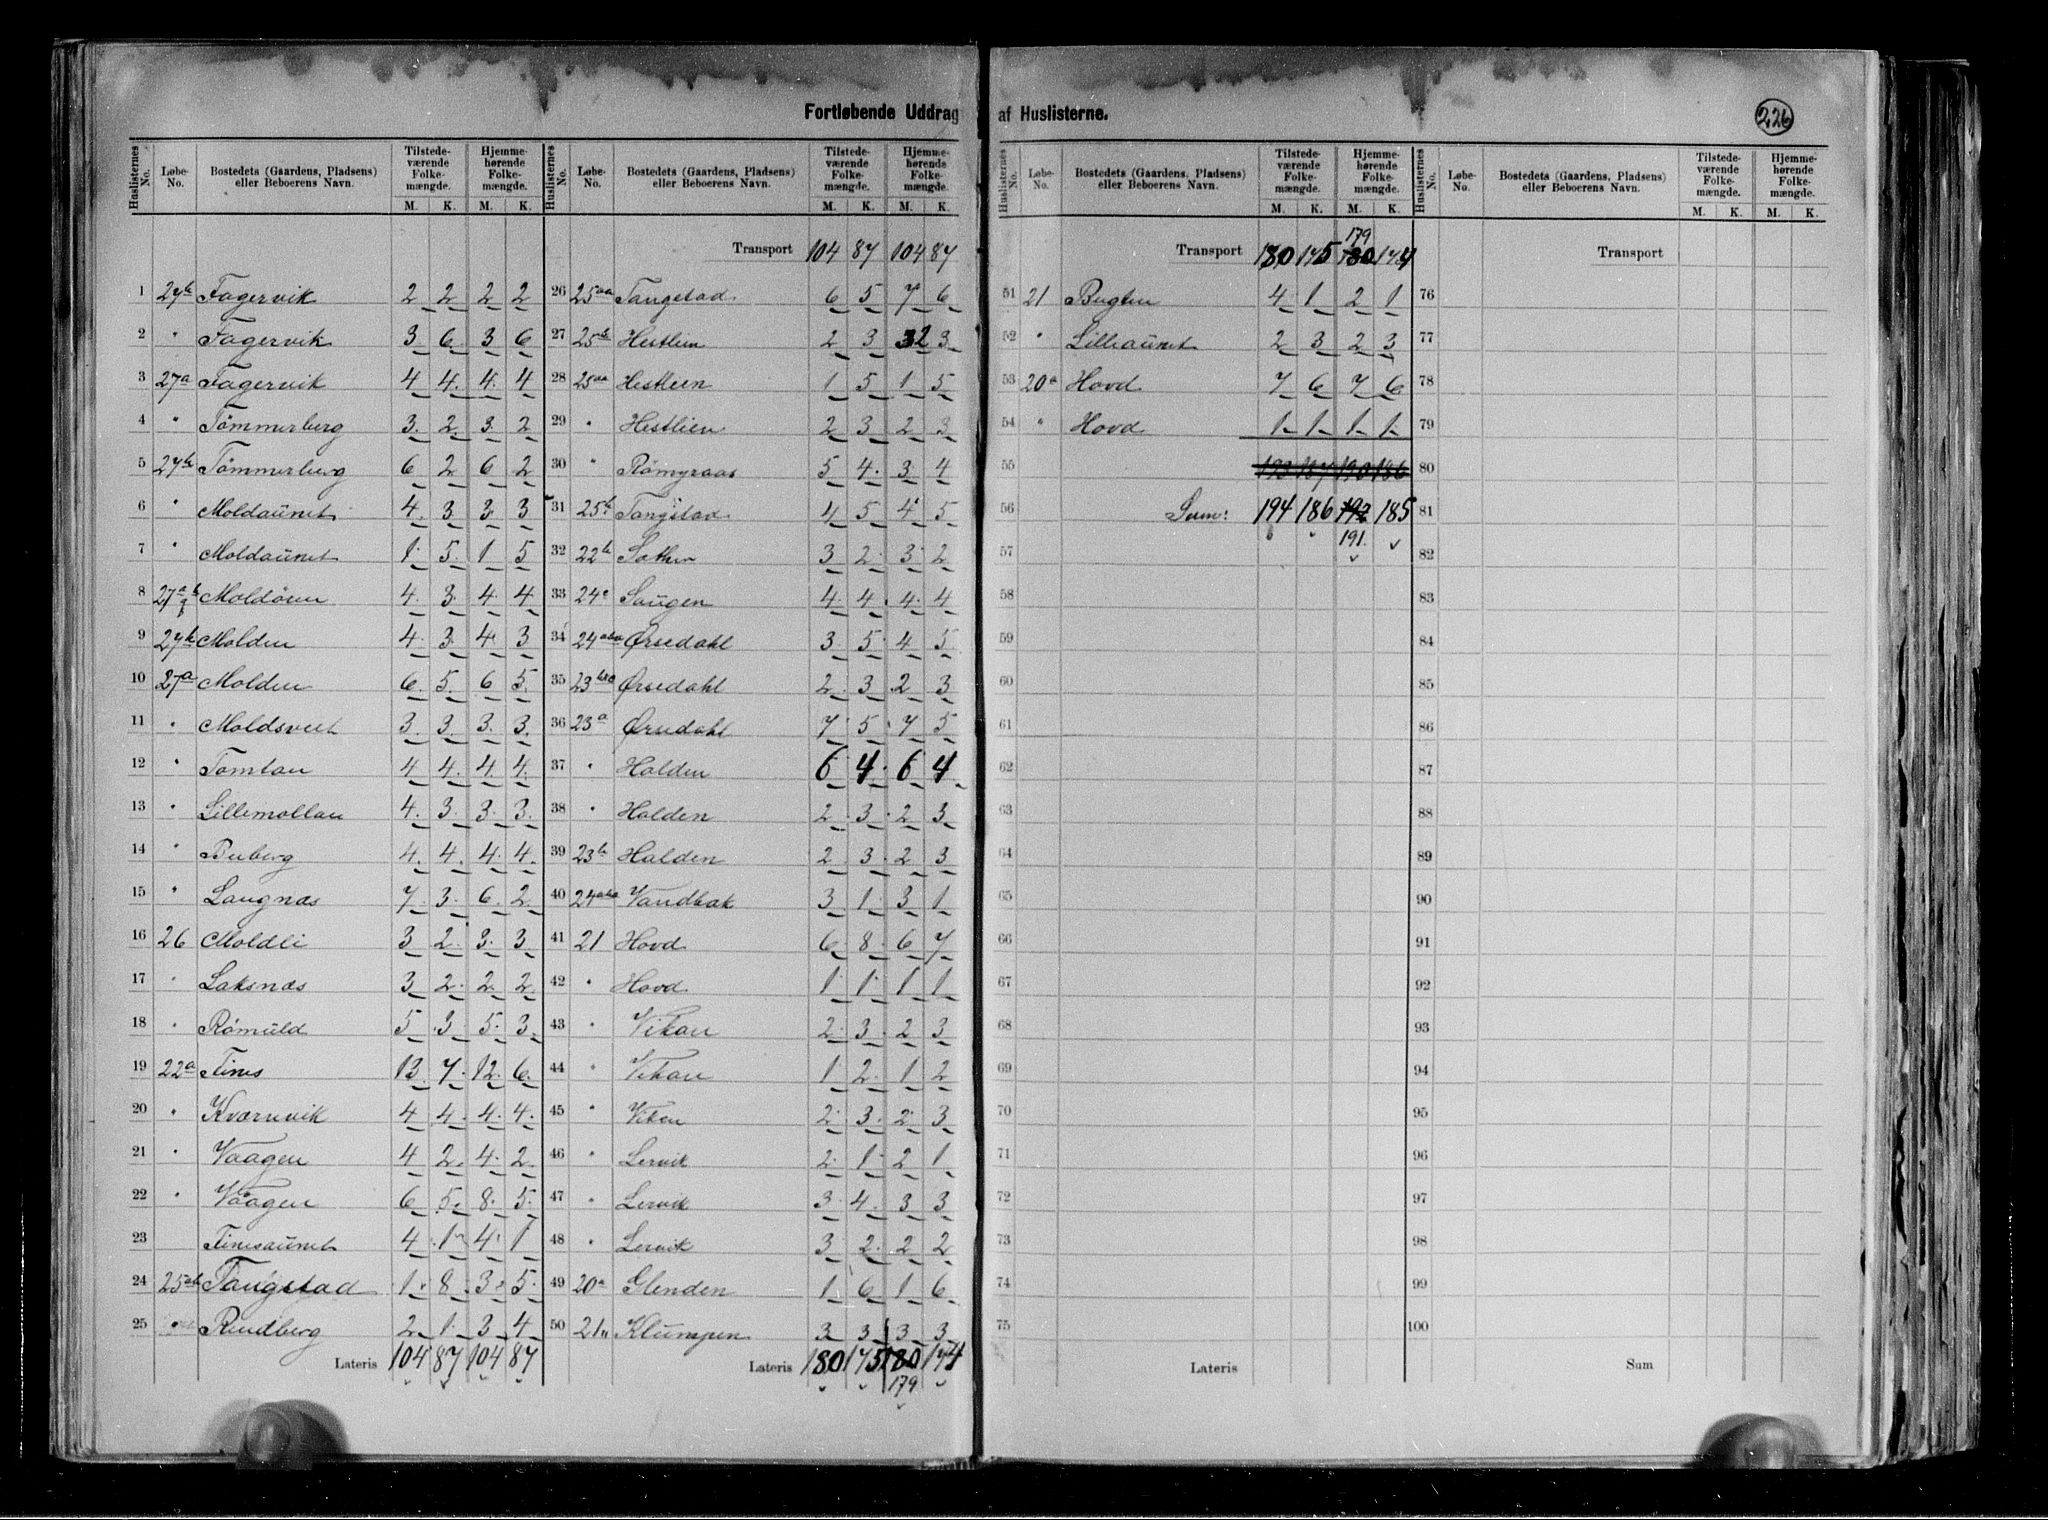 Fortløbende Uddrag af Huslisterne.
226
Huslisternes No. | Løbe-No. | Bostedets (Gaardens, Pladsens) eller Beboerens Navn. | Tilstedeværende Folkemængde. M. K. | Hjemmehørende Folkemængde. M. K.
1 27b Fagervik 2 2 2 2
2 " Fagervik 3 6 3 6
3 27a Fagervik 4 4 4 4
4 " Tömmerberg 3 2 3 2
5 27b Tömmerberg 6 2 6 2
6 " Moldaunet 4 3 3 3
7 " Moldaunet 1 5 1 5
8 27a Moldören 4 3 4 4
9 27b Molden 4 3 4 3
10 27a Molden 6 5 6 5
11 " Moldsveet 3 3 3 3
12 " Tomtau 4 4 4 4
13 " Lillemollan 4 3 3 3
14 " Buberg 4 4 4 4
15 " Langnæs 7 3 6 2
16 26 Moldli 3 2 3 3
17 " Laksnæs 3 2 2 2
18 " Römuld 5 3 5 3
19 22a Finis 13 7 12 6
20 " Kværnvik 4 4 4 4
21 " Vaagen 4 2 4 2
22 " Vaagen 6 5 8 5
23 Finisaunet 4 1 4 1
24 25ab Tangstad 1 8 3 5
25 " Rundberg 2 1 3 4
Lateris 104 87 104 87
Huslisternes No. | Løbe-No. | Bostedets (Gaardens, Pladsens) eller Beboerens Navn. | Tilstedeværende Folkemængde. M. K. | Hjemmehørende Folkemængde. M. K.
Transport 104 87 104 87
26 25aa Tangstad 6 5 7 6
27 25b Hestlien 2 3 32 3
28 25aa Hestlien 1 5 1 5
29 " Hestlien 2 3 2 3
30 " Römyraas 5 4 3 4
31 25b Tangstad 4 5 4 5
32 22b Sæther 3 2 3 2
33 24c Saugen 4 4 4 4
34 24aba Ørsedahl 3 5 4 5
35 23 Ørsedahl 2 3 2 3
36 23a Ørsedahl 7 5 7 5
37 " Halden 6 4 6 4
38 " Halden 2 3 2 3
39 23b Halden 2 3 2 3
40 24aba Vandbak 3 1 3 1
41 21 Hovd 6 8 6 7
42 " Hovd 1 1 1 1
43 " Vikan 2 3 2 3
44 " Vikan 1 2 1 2
45 " Viken 2 3 2 3
46 " Lervik 2 1 2 1
47 " Lervik 3 4 3 3
48 " Lervik 3 2 2 2
49 20a Glenden 1 6 1 6
50 21 Klumpen 3 3 3 3
Lateris 180 175 180 174
179
Huslisternes No. | Løbe-No. | Bostedets (Gaardens, Pladsens) eller Beboerens Navn. | Tilstedeværende Folkemængde. M. K. | Hjemmehørende Folkemængde. M. K.
179
Transport 180 175 180 174
51 21 Bugten 4 1 2 1
52 " Lilleaunet 2 3 2 3
53 20a Hovd 7 6 7 6
54 " Hovd 1 1 1 1
55 193 187 190 186
56 Sum: 194 186 192 185
57 191
58
59
60
61
62
63
64
65
66
67
68
69
70
71
72
73
74
75
Lateris
Huslisternes No. | Løbe-No. | Bostedets (Gaardens, Pladsens) eller Beboerens Navn. | Tilstedeværende Folkemængde. M. K. | Hjemmehørende Folkemængde. M. K.
Transport
76
77
78
79
80
81
82
83
84
85
86
87
88
89
90
91
92
93
94
95
96
97
98
99
100
Sum